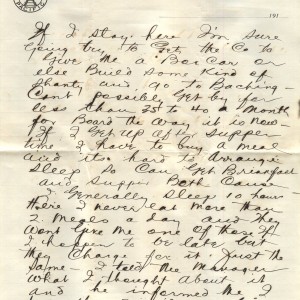 191
If I stay here I'm sure
going try to get the Co to
Give me a Box Car or
else Build Some Kind of
Shanty and go to Baching-
Cant possible Get by for
less than 35 to 40 a month
for Board the way it is now-
If I Get up after Supper
time I have to buy a meal
and its hard to Arrange
Sleep So Can Get Breakfast
and Supper Both Cause
I Generally Sleep 10 hours
there I never eat more than
2 meals a day and They
Wont Give me one of those If
I happen to be late but
they Charge for it Just the
Same- I told the Manager
what I thought about it
and he informed me I